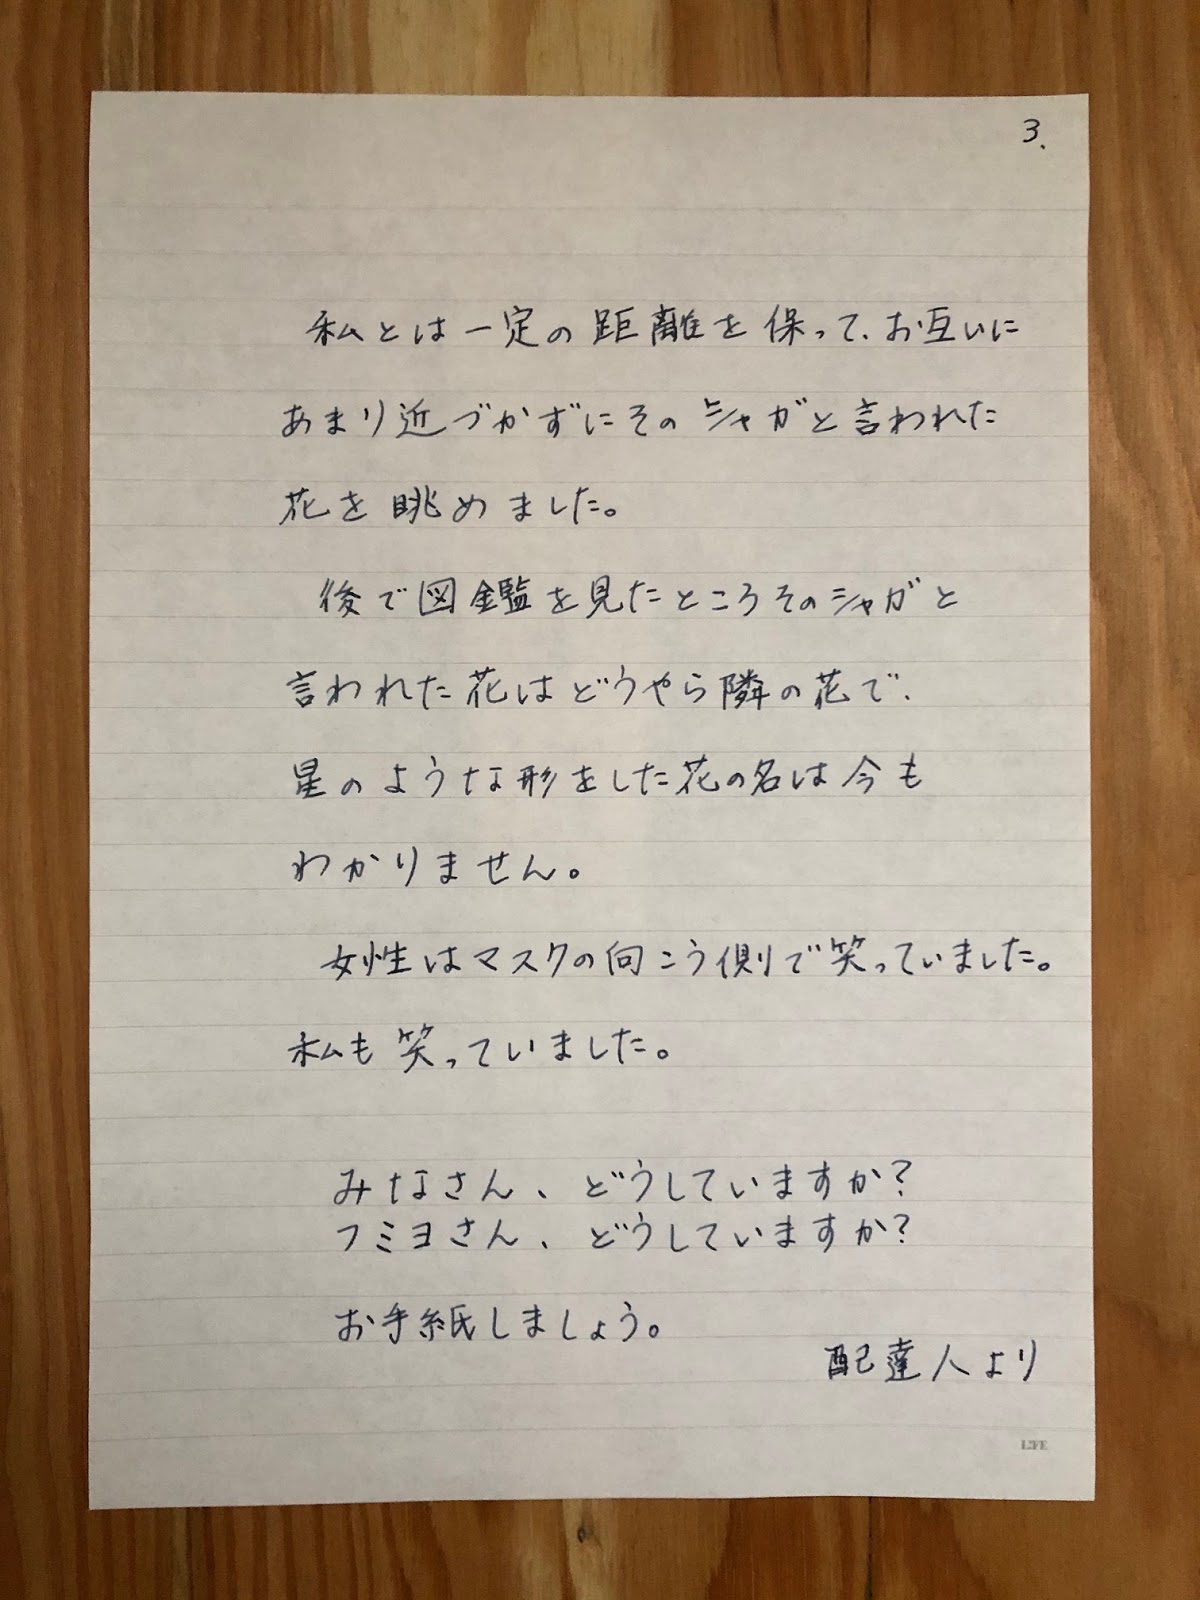 3.
私とは一定の距離を保って、お互いに
あまり近づかずにそのシャガと言われた
花を眺めました。
後で図鑑を見たところそのシャガと
言われた花はどうやら隣の花で、
星のような形をした花の名は今も
わかりません。
女性はマスクの向こう側で笑っていました。
私も笑っていました。
みなさん、どうしていますか?
フミヨさん、どうしていますか?
お手紙しましょう。
配達人より
LIFE